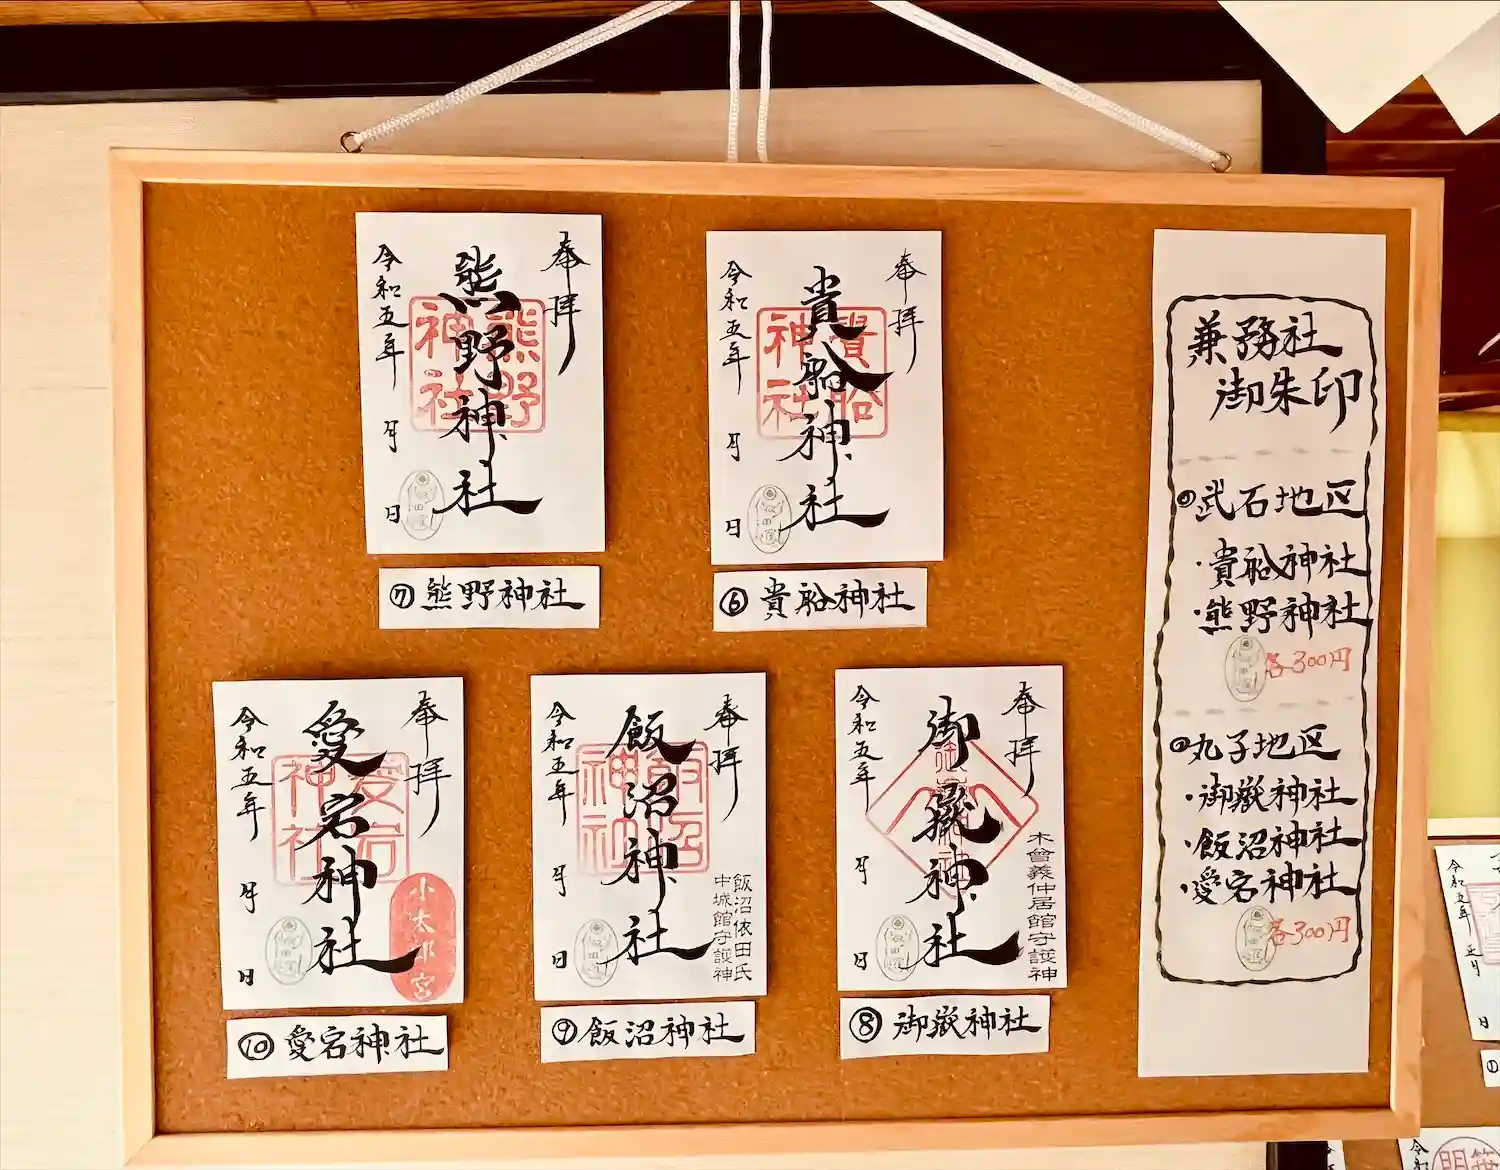 奉拝
熊野神社
熊野神社
令和五年 月 日
⑦熊野神社
奉拝
貴船神社
貴船神社
令和五年 月 日
⑥貴船神社
兼務社
御朱印
武石地区
・貴船神社
・熊野神社
各300円
丸子地区
・御嶽神社
・飯沼神社
・愛宕神社
各300円
奉拝
愛宕神社
愛宕神社
小太郎宮
令和五年 月 日
⑩愛宕神社
奉拝
飯沼神社
飯沼神社
飯沼依田氏
中城館守護神
令和五年 月 日
⑨飯沼神社
奉拝
御嶽神社
木曾義仲居館守護神
令和五年 月 日
⑧御嶽神社
令和五年 正月
日
①